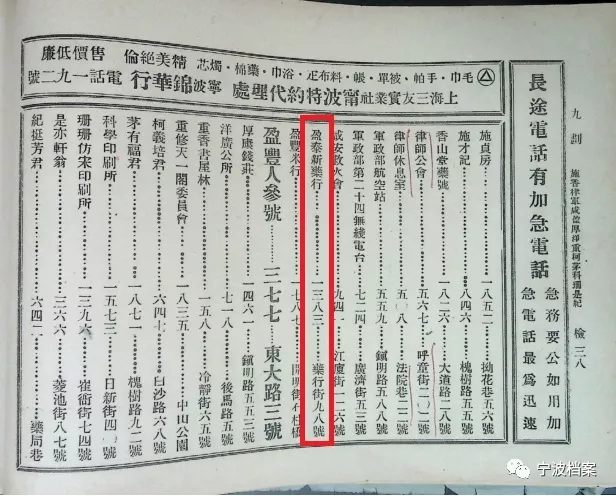 九劃 施香律軍咸盈厚洋重柯茅科珊是紀 檢三八
長途電話有加急電話
急務要公如用加
急電話最爲迅速
毛巾・手帕・被單・帳・料布疋・浴巾・藥棉・燭芯
上海三友實業社甯波特約代理處
精美絕倫
售價低廉
寧波錦華行
電話一九二號
施貞房 一八五二 拗花巷五六號
施才記 八四六 槐樹路五五號
香山堂藥號 一八二六 大道路二八號
律師公會 五六七 呼童街一〇二號
律師休息室 五〇八 法院巷二二號
軍政部航空站 五五九 鎭明路五八八號
軍政部第二十四無綫電台 二七四 廣濟街五三號
咸安救火會 九四一 江廈街一二六號
盈泰新藥行 一三八三 藥行街九八號
盈豐米行 七八七 開明街 柱橋
盈豐人參號 三七七 東大路三號
厚康錢莊 一四六一 鎭明路五五三號
洋廣公所 七一八 後馬路五號
重香書屋林 一五八 冷靜街六五號
重修天一閣委員會 一八三五 中山公園
柯義培君 六四七 白沙路六八號
茅有福君 一八七一 槐樹路九二號
科學印刷所 一五七三 日新街四號
珊珊仿宋印刷所 一三九六 崔衙街七四號
是亦軒翁 三六六 菱池街八七號
紀挺芳君 六四二 藥局巷
宁波档案